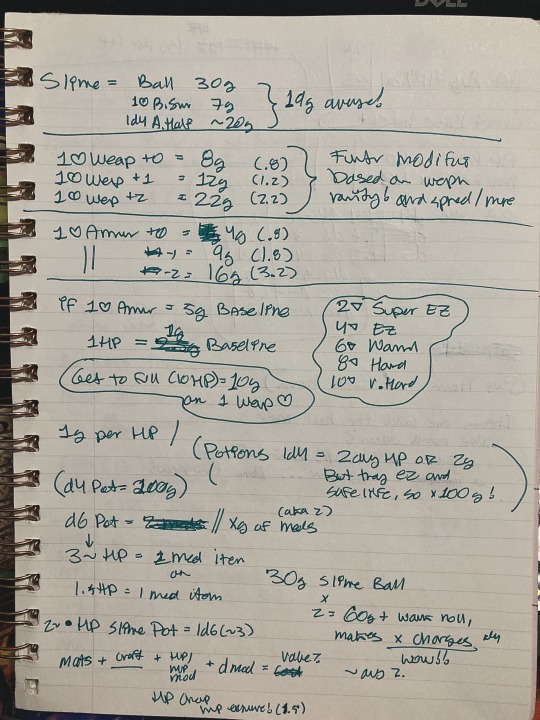 DELL
Slime = Ball 30g
10 B.Sm 7g
1d4 A.Half ~20g
} 19g average!
1♡ Weap +0 = 8g (.8)
1♡ Weap +1 = 12g (1.2)
1♡ Wep +2 = 22g (2.2)
Based on
rarity! and spred/more
1♡ Armur +0 = 4g (.8)
|| -1 = 9g (1.8)
-2 = 16g (3.2)
if 1♡ Armur = 5g Baseline
1HP = 1g Baseline
Get to Fill (10HP) = 10g
on 1 Weap ♡
2▽ Super EZ
4▽ EZ
6▽
8▽ Hard
10▽ V.Hard
1g per HP /
(Potions 1d4 = 2avg HP OR 2g
But they EZ and
so x100g!)
(d4 Pot = 200g)
d6 Pot = // xg of mats
(aka 2)
↓
3~ HP = 1 med item
or
1.5HP = 1 med item
30g Slime Ball
x
2 = 60g +
makes x charges
wow!!
~ avg 2.
2~ • HP Slime Pot = 1d6 (~3)
mats + craft + HP/ mp mod + d mod = value?
HP cheap
mp (1.5)